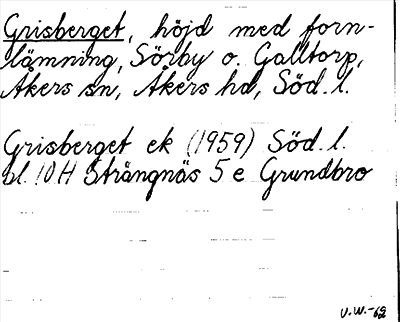 Grisberget, höjd med forn-
lämning, Sörby o. Galltorp,
Åkers sn, Åkers hd, Söd. l.
Grisberget ek (1959) Söd. l.
bl. 10H Strängnäs 5 e Grundbro
U.W.-62